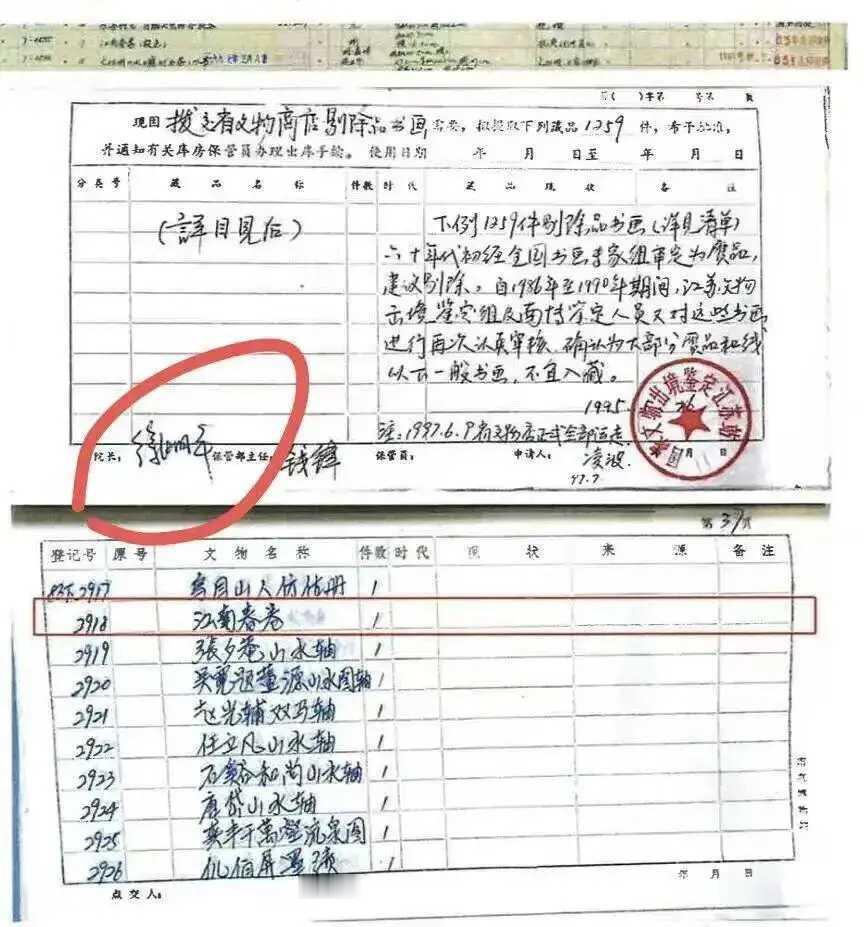 现因 拨交省文物商店剔除品书画 需要,拟提取下列藏品 1259 件,希予批准,
并通知有关库房保管员办理出库手续。 使用日期 年 月 日至 年 月 日
分类号 藏品名称 件数 时代 藏品现状 备注
(詳目見后)
下例1259件剔除品书画(详见清单)
六十年代初经全国书画专家组审定为贋品,
建议剔除。自1986年至1990年期间,江苏文物
出境鉴定组及南博鉴定人员又对这些书画
进行再次认真审核,确认为大部分贋品和线
以下一般书画,不宜入藏。
1995 26
注:1997.6.9省文物店正式全部运走
院长: 徐湖平 保管部主任: 钱锋 保管员: 申请人: 凌波
97.7
月 日
文物出境鉴定江苏站
第 37 页
登记号 原号 文物名称 件数 时代 现状 来源 备注
2917 1
2918 江南春卷 1
2919 張夕菴山水轴 1
2920 吴寛题董源山水图轴 1
2921 赵光辅双马轴 1
2922 任立凡山水轴 1
2923 石谿和尚山水轴 1
2924 唐岱山水轴 1
2925 千萬壑流泉图 1
2926 1
点交人: 年 月 日